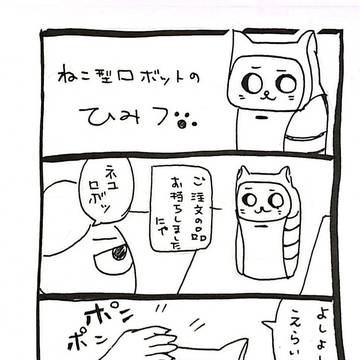 ねこ型ロボットの
ひみつ
ご注文の品
お持ちしました
にゃ
ネコ
ロボッ
よしよ
えらい
ポン
ポン